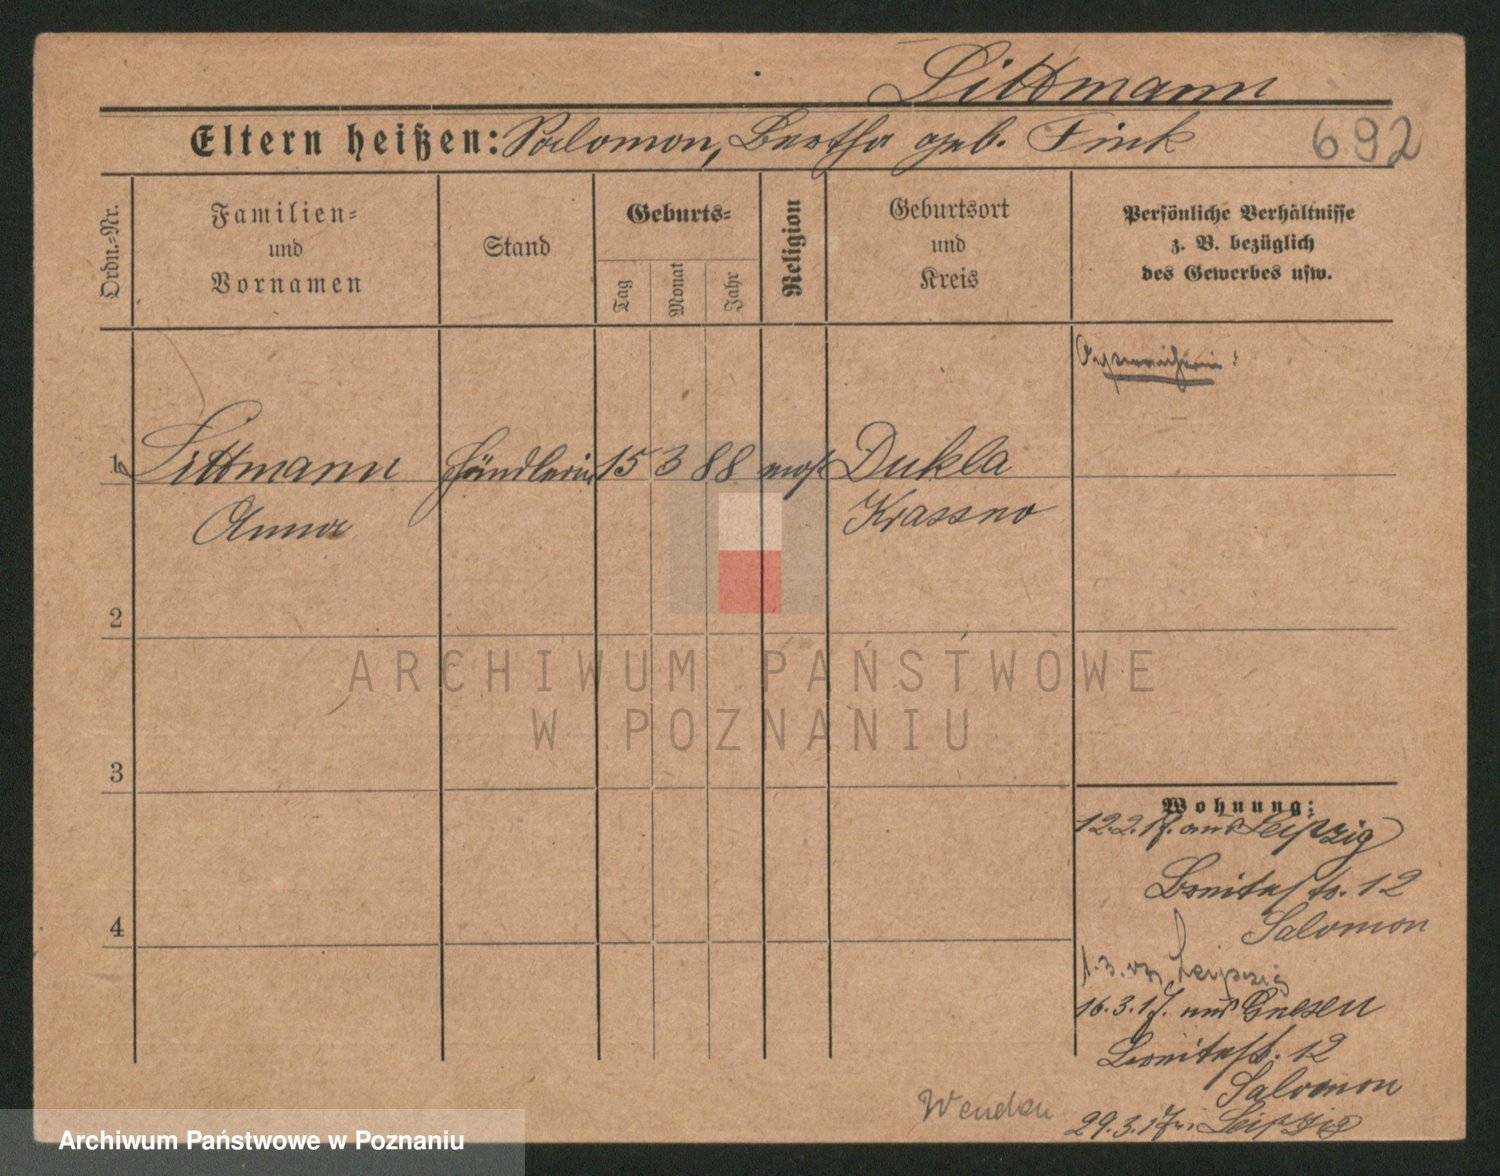 Littmann
Eltern heißen: Salomon, Bertha geb. Fink
692
Ordn.=Nr.
Familien=
und
Vornamen
Stand
Geburts=
Tag
Monat
Jahr
Religion
Geburtsort
und
Kreis
Persönliche Verhältnisse
z. B. bezüglich
des Gewerbes usw.
1 Littmann Händlerin 15 3 88 mos. Dukla
Anna Krassno
2
3
4
Wohnung:
12.2.17. aus Leipzig
Breitestr. 12
Salomon
1.3. Leipzig
16.3.17. aus Gnesen
Breitestr. 12
Salomon
29.3.17. Leipzig
Wenden
ARCHIWUM PAŃSTWOWE
W POZNANIU
Archiwum Państwowe w Poznaniu